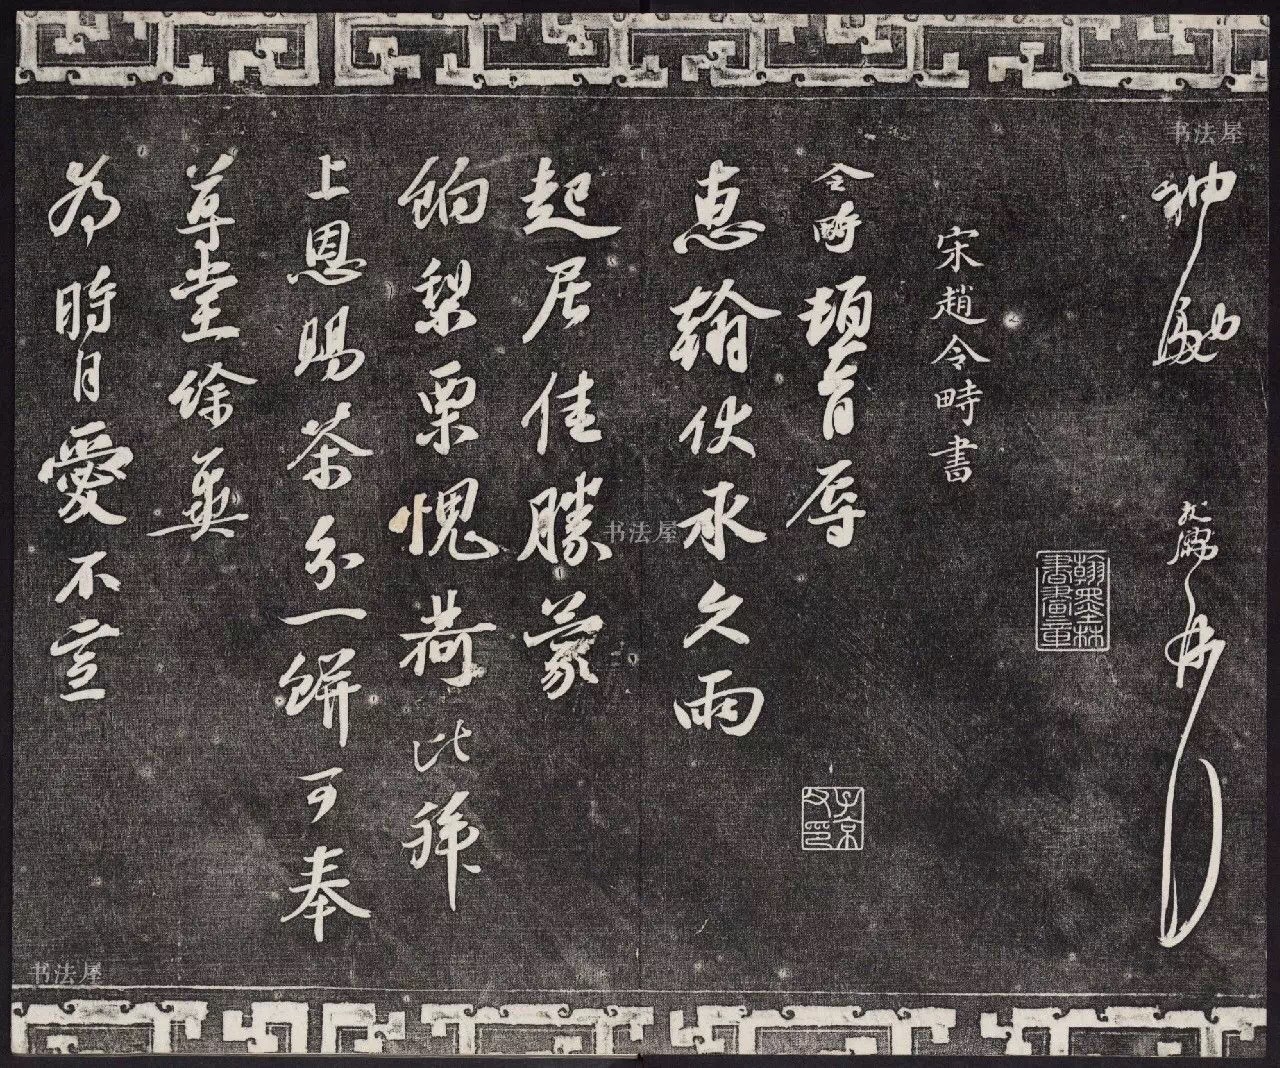 书法屋
神
翰墨林書畫章
宋趙令畤書
令畤頓首辱
子京父印
惠翰伏承久雨
起居佳勝蒙
书法屋
餉梨栗愧荷比拜
上恩賜茶分一餅可奉
尊堂餘冀
為時自愛不宣
书法屋